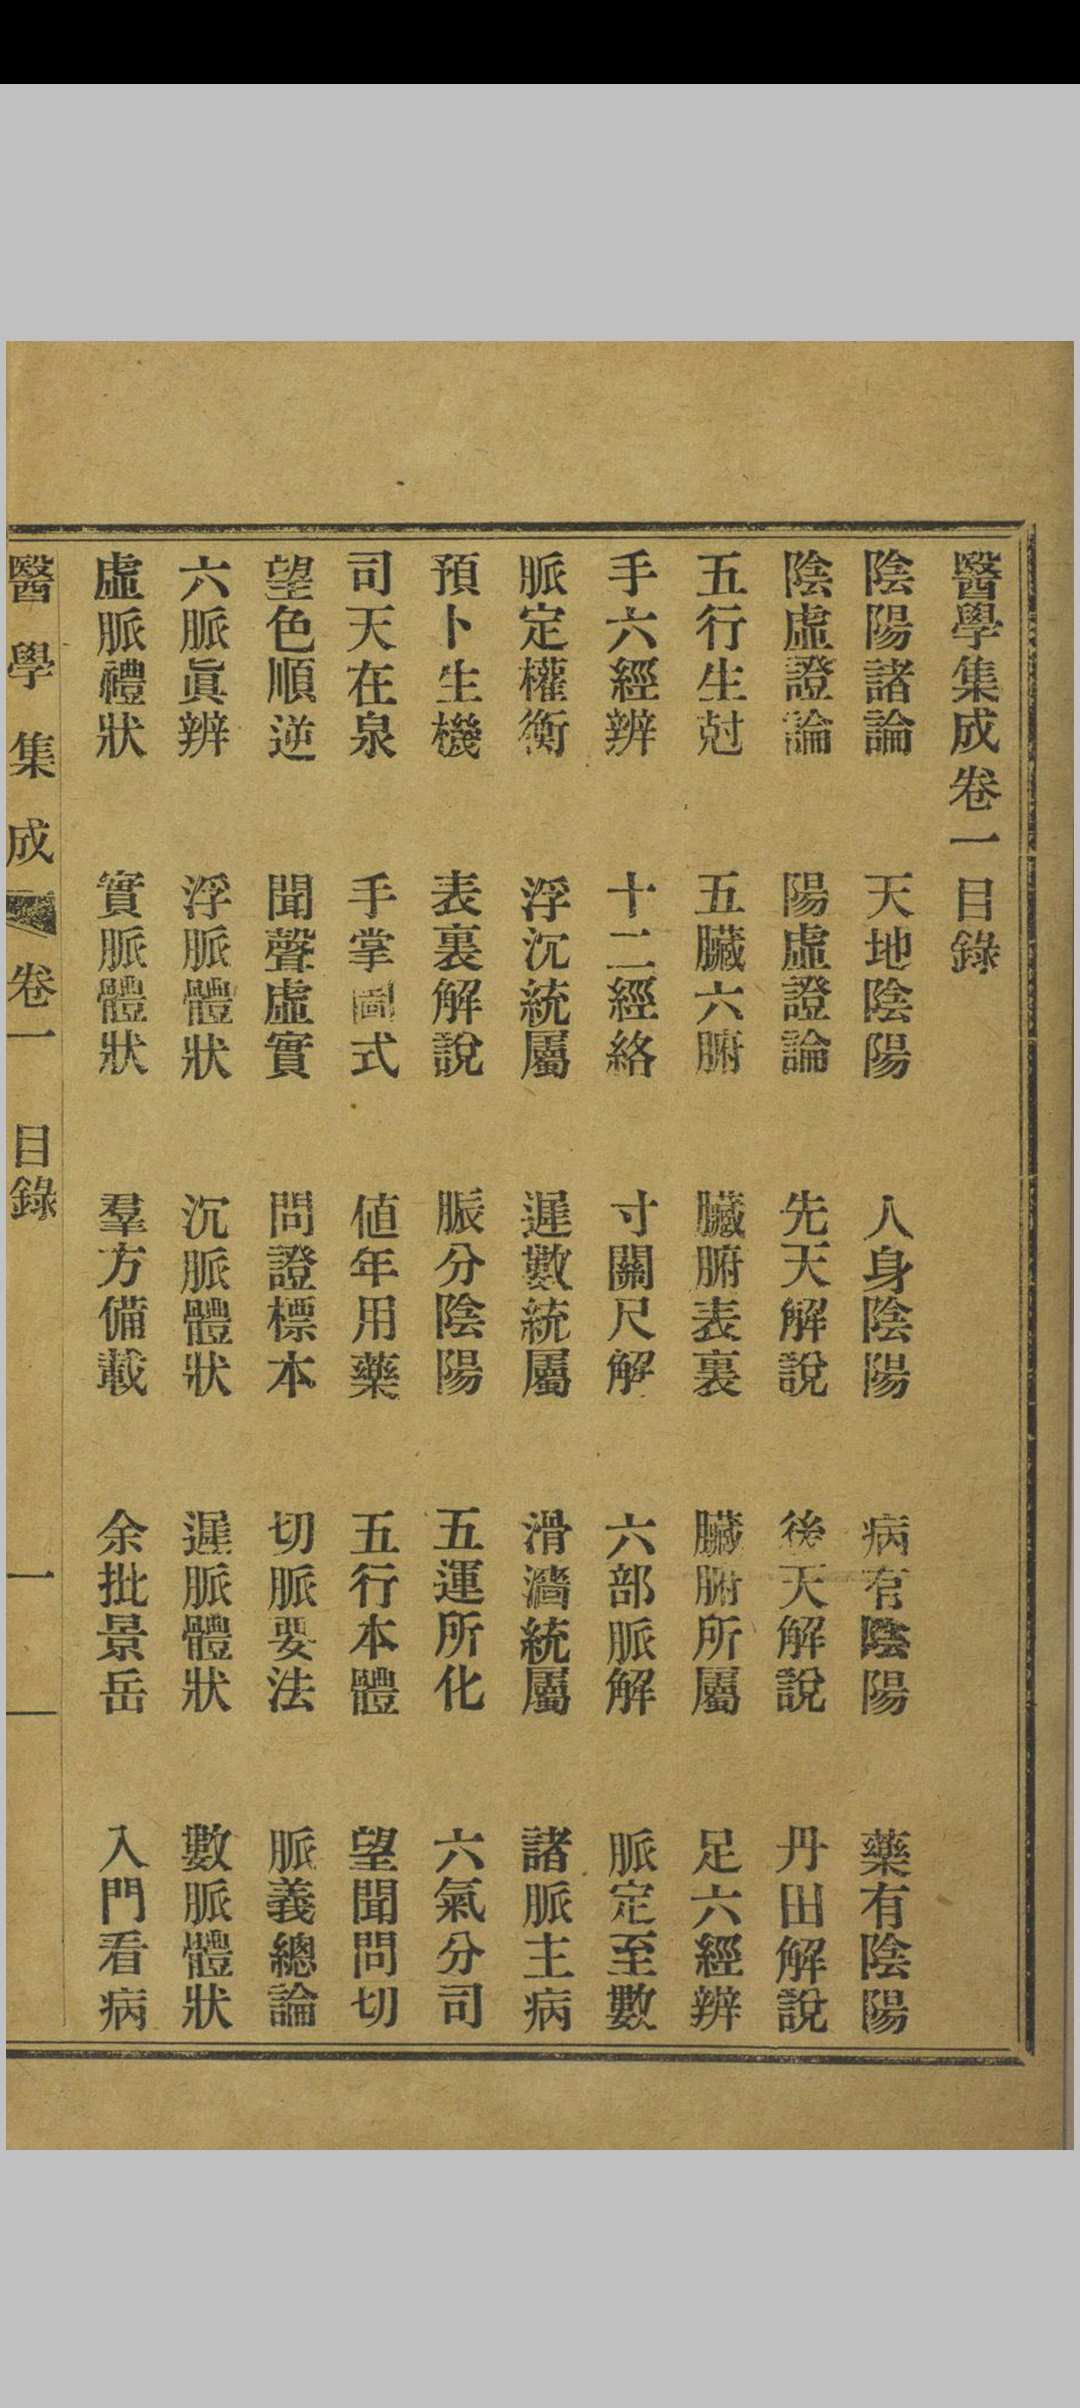 醫學集成卷一目錄
陰陽諸論 天地陰陽 人身陰陽 病有陰陽 藥有陰陽
陰虛證論 陽虛證論 先天解說 後天解說 丹田解說
五行生尅 五臟六腑 臟腑表裏 臟腑所屬 足六經辨
手六經辨 十二經絡 寸關尺解 六部脈解 脈定至數
脈定權衡 浮沉統屬 遲數統屬 滑濇統屬 諸脈主病
預卜生機 表裏解說 脹分陰陽 五運所化 六氣分司
司天在泉 手掌圖式 値年用藥 五行本體 望聞問切
望色順逆 聞聲虛實 問證標本 切脈要法 脈義總論
六脈眞辨 浮脈體狀 沉脈體狀 遲脈體狀 數脈體狀
虛脈禮狀 實脈體狀 羣方備載 余批景岳 入門看病
醫學集成 卷一 目錄 一